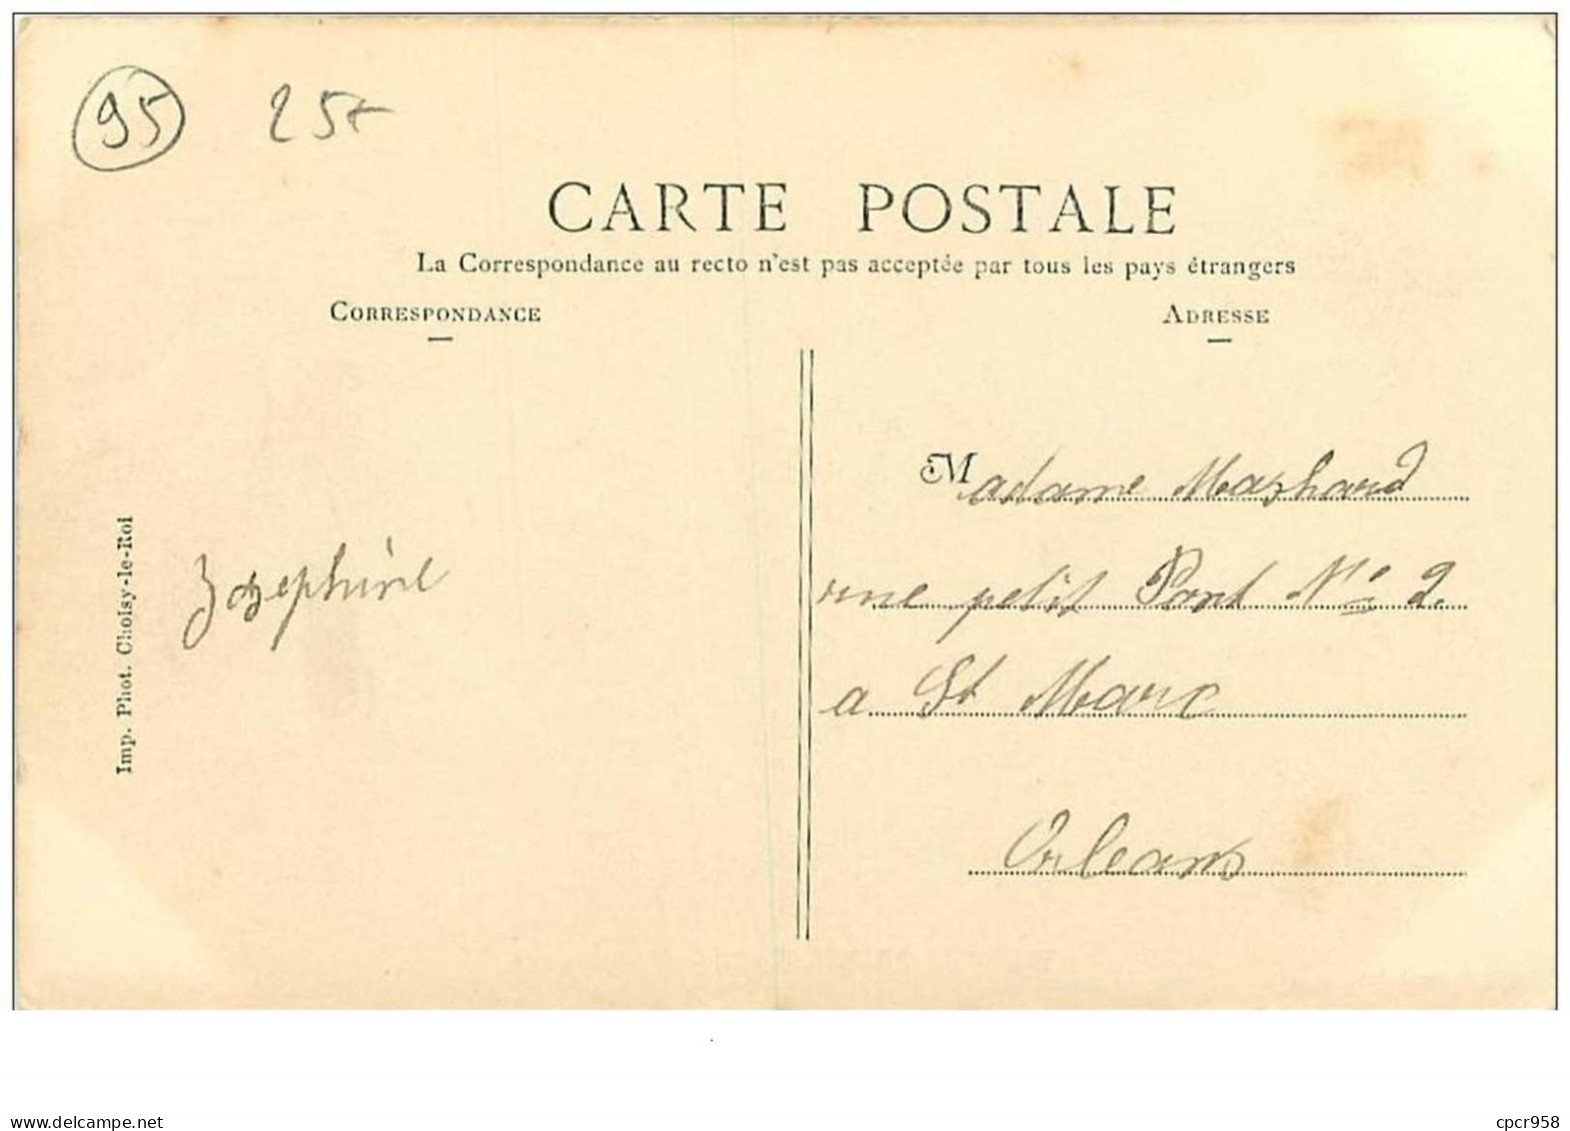 95 25F
CARTE POSTALE
La Correspondance au recto n'est pas acceptée par tous les pays étrangers
CORRESPONDANCE
ADRESSE
Madame
rue petit Pont No 2.
a St Marc
Orleans
Josephine
Imp. Phot. Choisy-le-Roi
www.delcampe.net
cpcr958